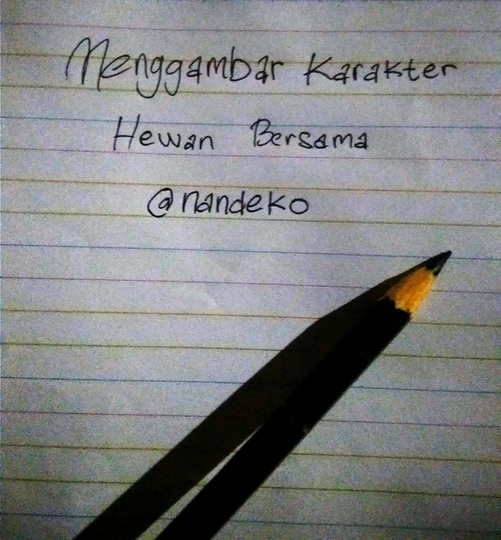 Menggambar Karakter
Hewan Bersama
@nandeko